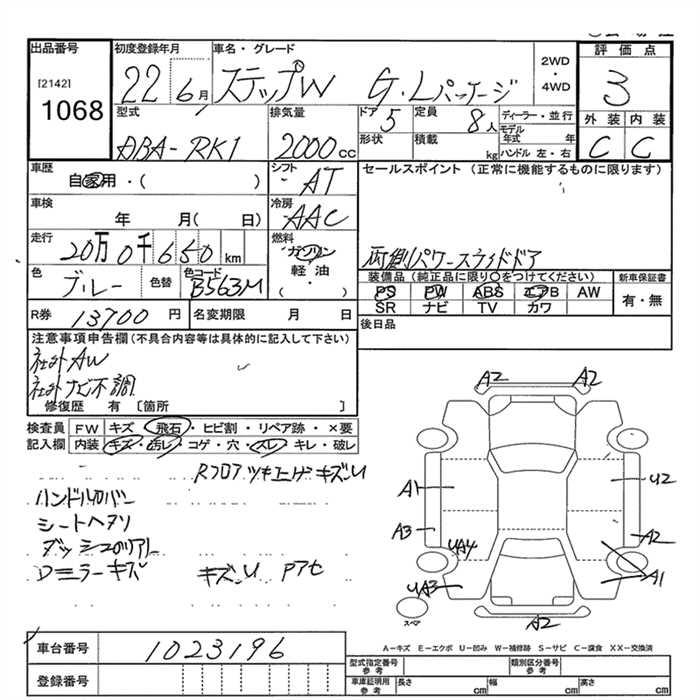 出品番号 初度登録年月 車名・グレード 評価点
[2142] 1068 22 6月 ステップW G・Lパッケージ 2WD・4WD 3
外装 内装
C C
型式 排気量 ドア 定員 ディーラー・並行
DBA-RK1 2000cc 5 8人 モデル年式 年
形状 積載 kg ハンドル 左・右
車歴 シフト セールスポイント (正常に機能するものに限ります)
自家用・( ) AT
車検 冷房
年 月( 日) AAC
走行 燃料
20万0千650km ガソリン 両側パワースライドドア
軽油
・( )
色 色替 色コード 装備品 (純正品に限り○をつけてください) 新車保証書
ブルー B563M PS PW ABS エアB AW 有・無
SR ナビ TV カワ
R券 13700円 名変期限 月 日 後日品
注意事項申告欄(不具合内容等は具体的に記入して下さい)
社外AW
社外ナビ不調
修復歴 有 [箇所 ]
検査員 FW キズ・飛石・ヒビ割・リペア跡・×要
記入欄 内装 キズ・汚レ・コゲ・穴・スレ・キレ・破レ
Rフロア ツキ上げ キズU
シートヘタリ
Dミラーキズ キズ、U
A2 A2
A1 U2
A3 UA4 A2
UA3 A1
スペア A2
車台番号 1023196
登録番号
A-キズ E-エクボ U-凹み W-補修跡 S-サビ C-腐食 XX-交換済
型式指定番号参考 類別区分番号参考
車庫証明用参考 長さ cm 幅 cm 高さ cm